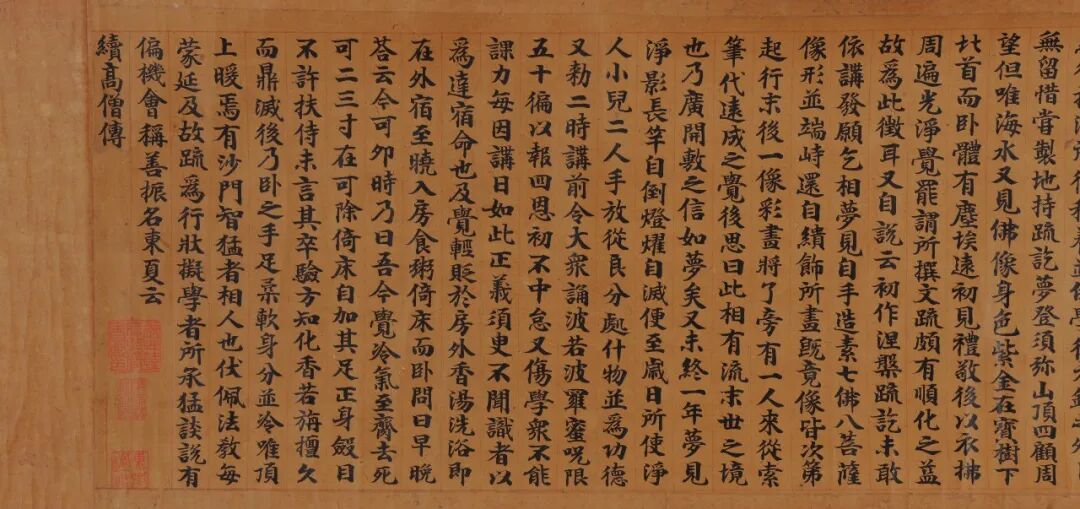 無留惜嘗製地持疏訖夢登須弥山頂四顧周
望但唯海水又見佛像身色紫金在寳樹下
北首而卧體有塵埃遠初見禮敬後以衣拂
周遍光淨覺罷謂所撰文疏頗有順化之益
故爲此徵耳又自說云初作涅槃疏訖未敢
依講發願乞相夢見自手造素七佛八菩薩
像形並端峙還自繢飾所畫旣竟像皆次第
起行末後一像彩畫將了旁有一人來從索
筆代遠成之覺後思曰此相有流末世之境
也乃廣開敷之信如夢矣又未終一年夢見
淨影長竿自倒燈燿自滅便至歲日所使淨
人小兒二人手放從良分處什物並爲功德
又勑二時講前令大衆誦波若波羅蜜呪限
五十徧以報四恩初不中怠又傷學衆不能
課力每因講日如此正義須臾不聞識者以
爲達宿命也及覺輕貶於房外香湯洗浴即
在外宿至曉入房食粥倚床而卧問曰早晚
荅云今可卯時乃曰吾今覺冷氣至齊去死
可二三寸在可除倚床自加其足正身斂目
不許扶侍未言其卒驗方知化香若旃檀久
而鼎滅後乃卧之手足柔軟身分並冷唯頂
上暖焉有沙門智猛者相人也伏佩法教每
蒙延及故疏爲行狀擬學者所承猛談說有
偏機會稱善振名東夏云
續高僧傳